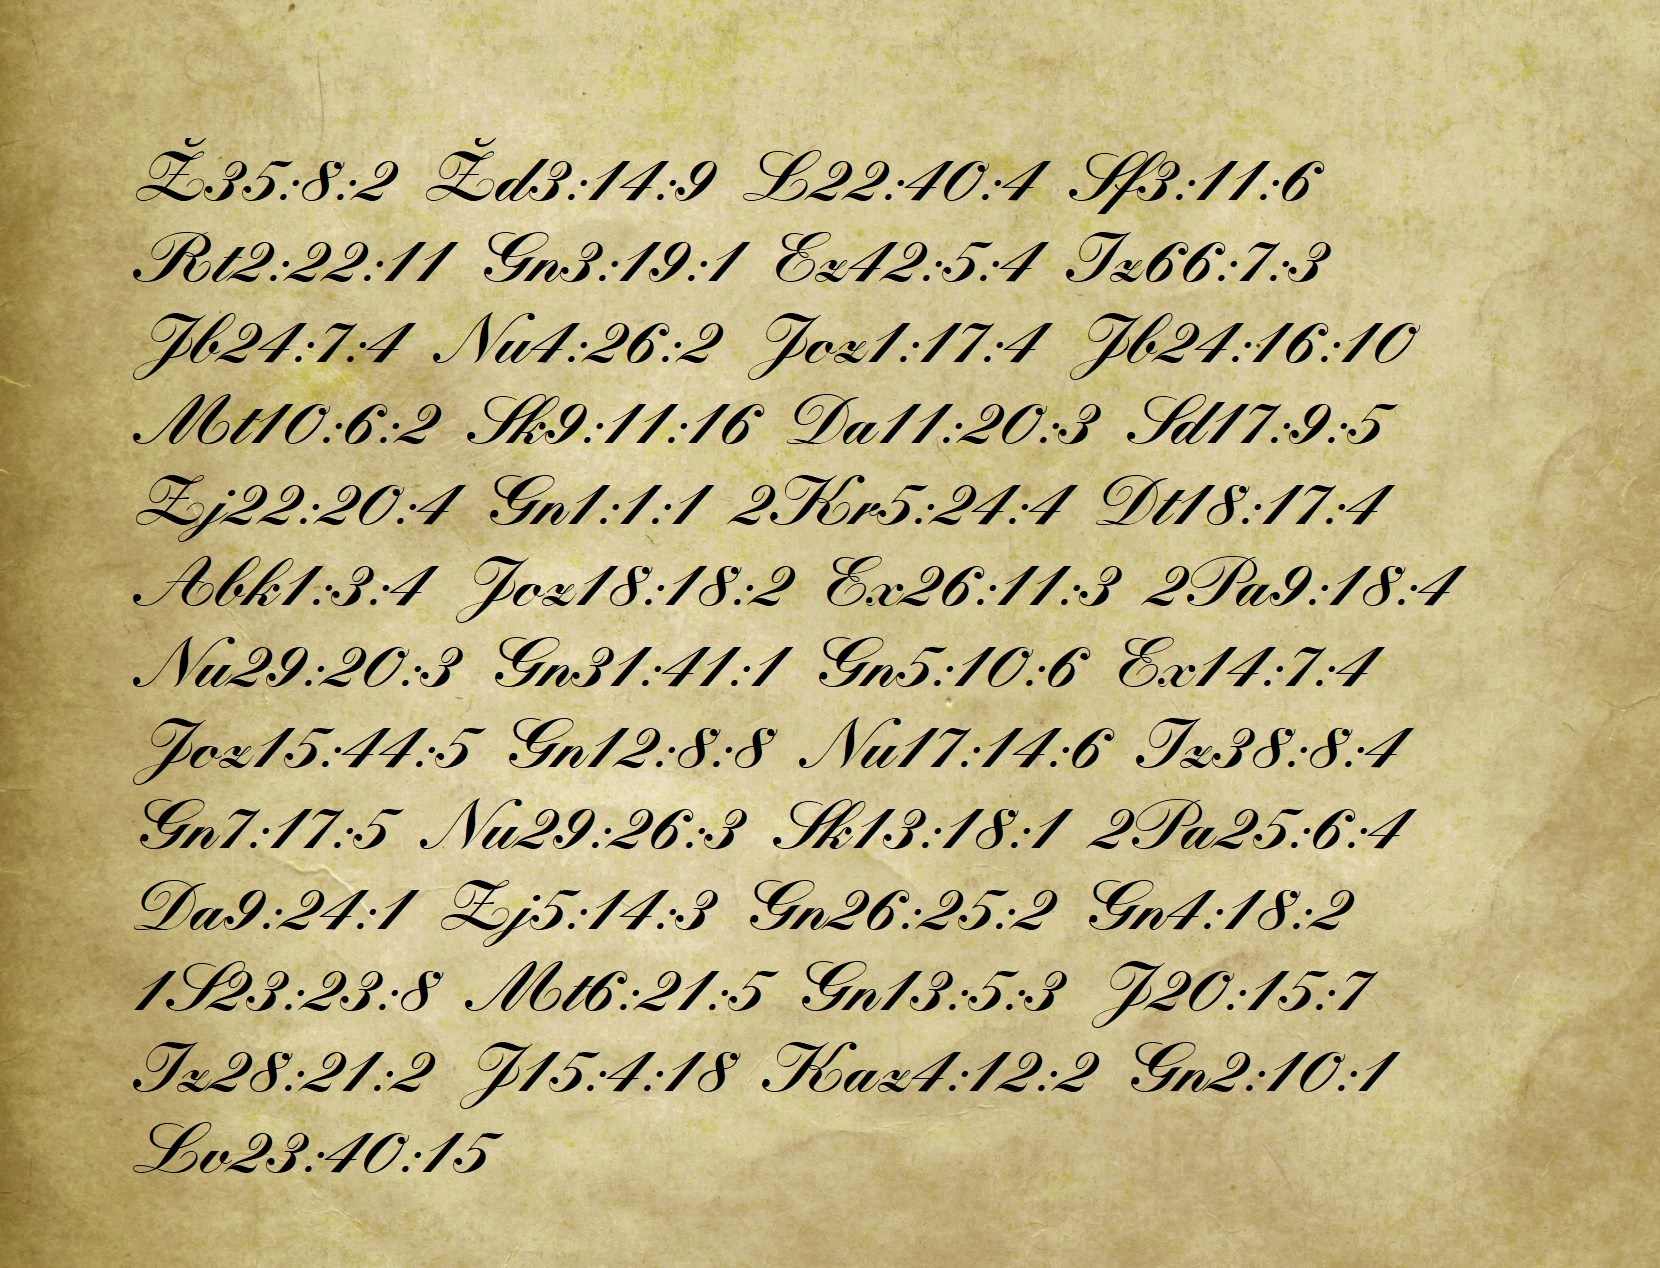 Ž35:8:2 Žd3:14:9 L22:40:4 Sf3:11:6
Rt2:22:11 Gn3:19:1 Ez42:5:4 Iz66:7:3
Jb24:7:4 Nu4:26:2 Joz1:17:4 Jb24:16:10
Mt10:6:2 Sk9:11:16 Da11:20:3 Sd17:9:5
Zj22:20:4 Gn1:1:1 2Kr5:24:4 Dt18:17:4
Abk1:3:4 Joz18:18:2 Ex26:11:3 2Pa9:18:4
Nu29:20:3 Gn31:41:1 Gn5:10:6 Ex14:7:4
Joz15:44:5 Gn12:8:8 Nu17:14:6 Iz38:8:4
Gn7:17:5 Nu29:26:3 Sk13:18:1 2Pa25:6:4
Da9:24:1 Zj5:14:3 Gn26:25:2 Gn4:18:2
1S23:23:8 Mt6:21:5 Gn13:5:3 J20:15:7
Iz28:21:2 J15:4:18 Kaz4:12:2 Gn2:10:1
Lv23:40:15